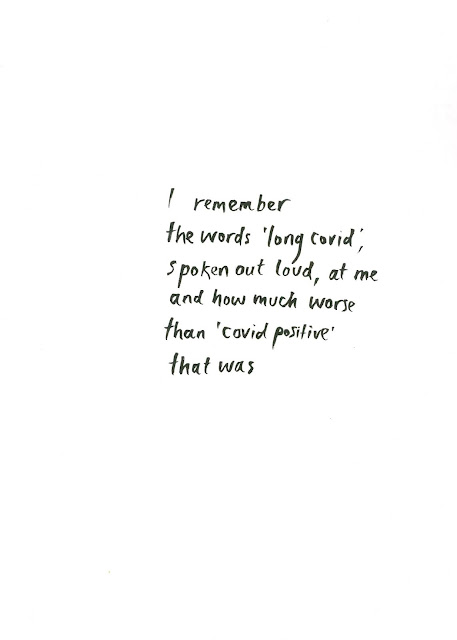 I remember
the words 'long covid',
spoken out loud, at me
and how much worse
than 'covid positive'
that was